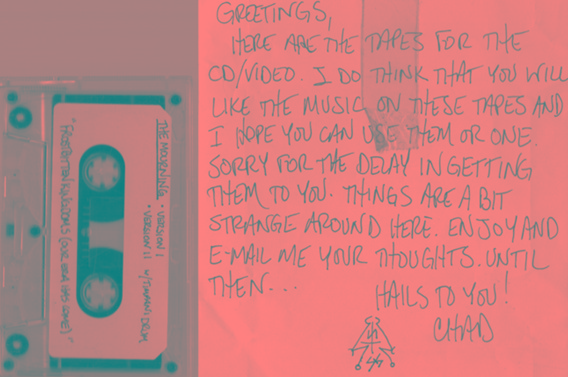 GREETINGS,
HERE ARE THE TAPES FOR THE
CD/VIDEO. I DO THINK THAT YOU WILL
LIKE THE MUSIC ON THESE TAPES AND
I HOPE YOU CAN USE THEM OR ONE.
SORRY FOR THE DELAY IN GETTING
THEM TO YOU. THINGS ARE A BIT
STRANGE AROUND HERE. ENJOY AND
E-MAIL ME YOUR THOUGHTS. UNTIL
THEN...
HAILS TO YOU!
CHAD
THE MOURNING • VERSION I
• VERSION II W/ DRUM
"FORGOTTEN KINGDOMS (OUR ERA HAS COME)"